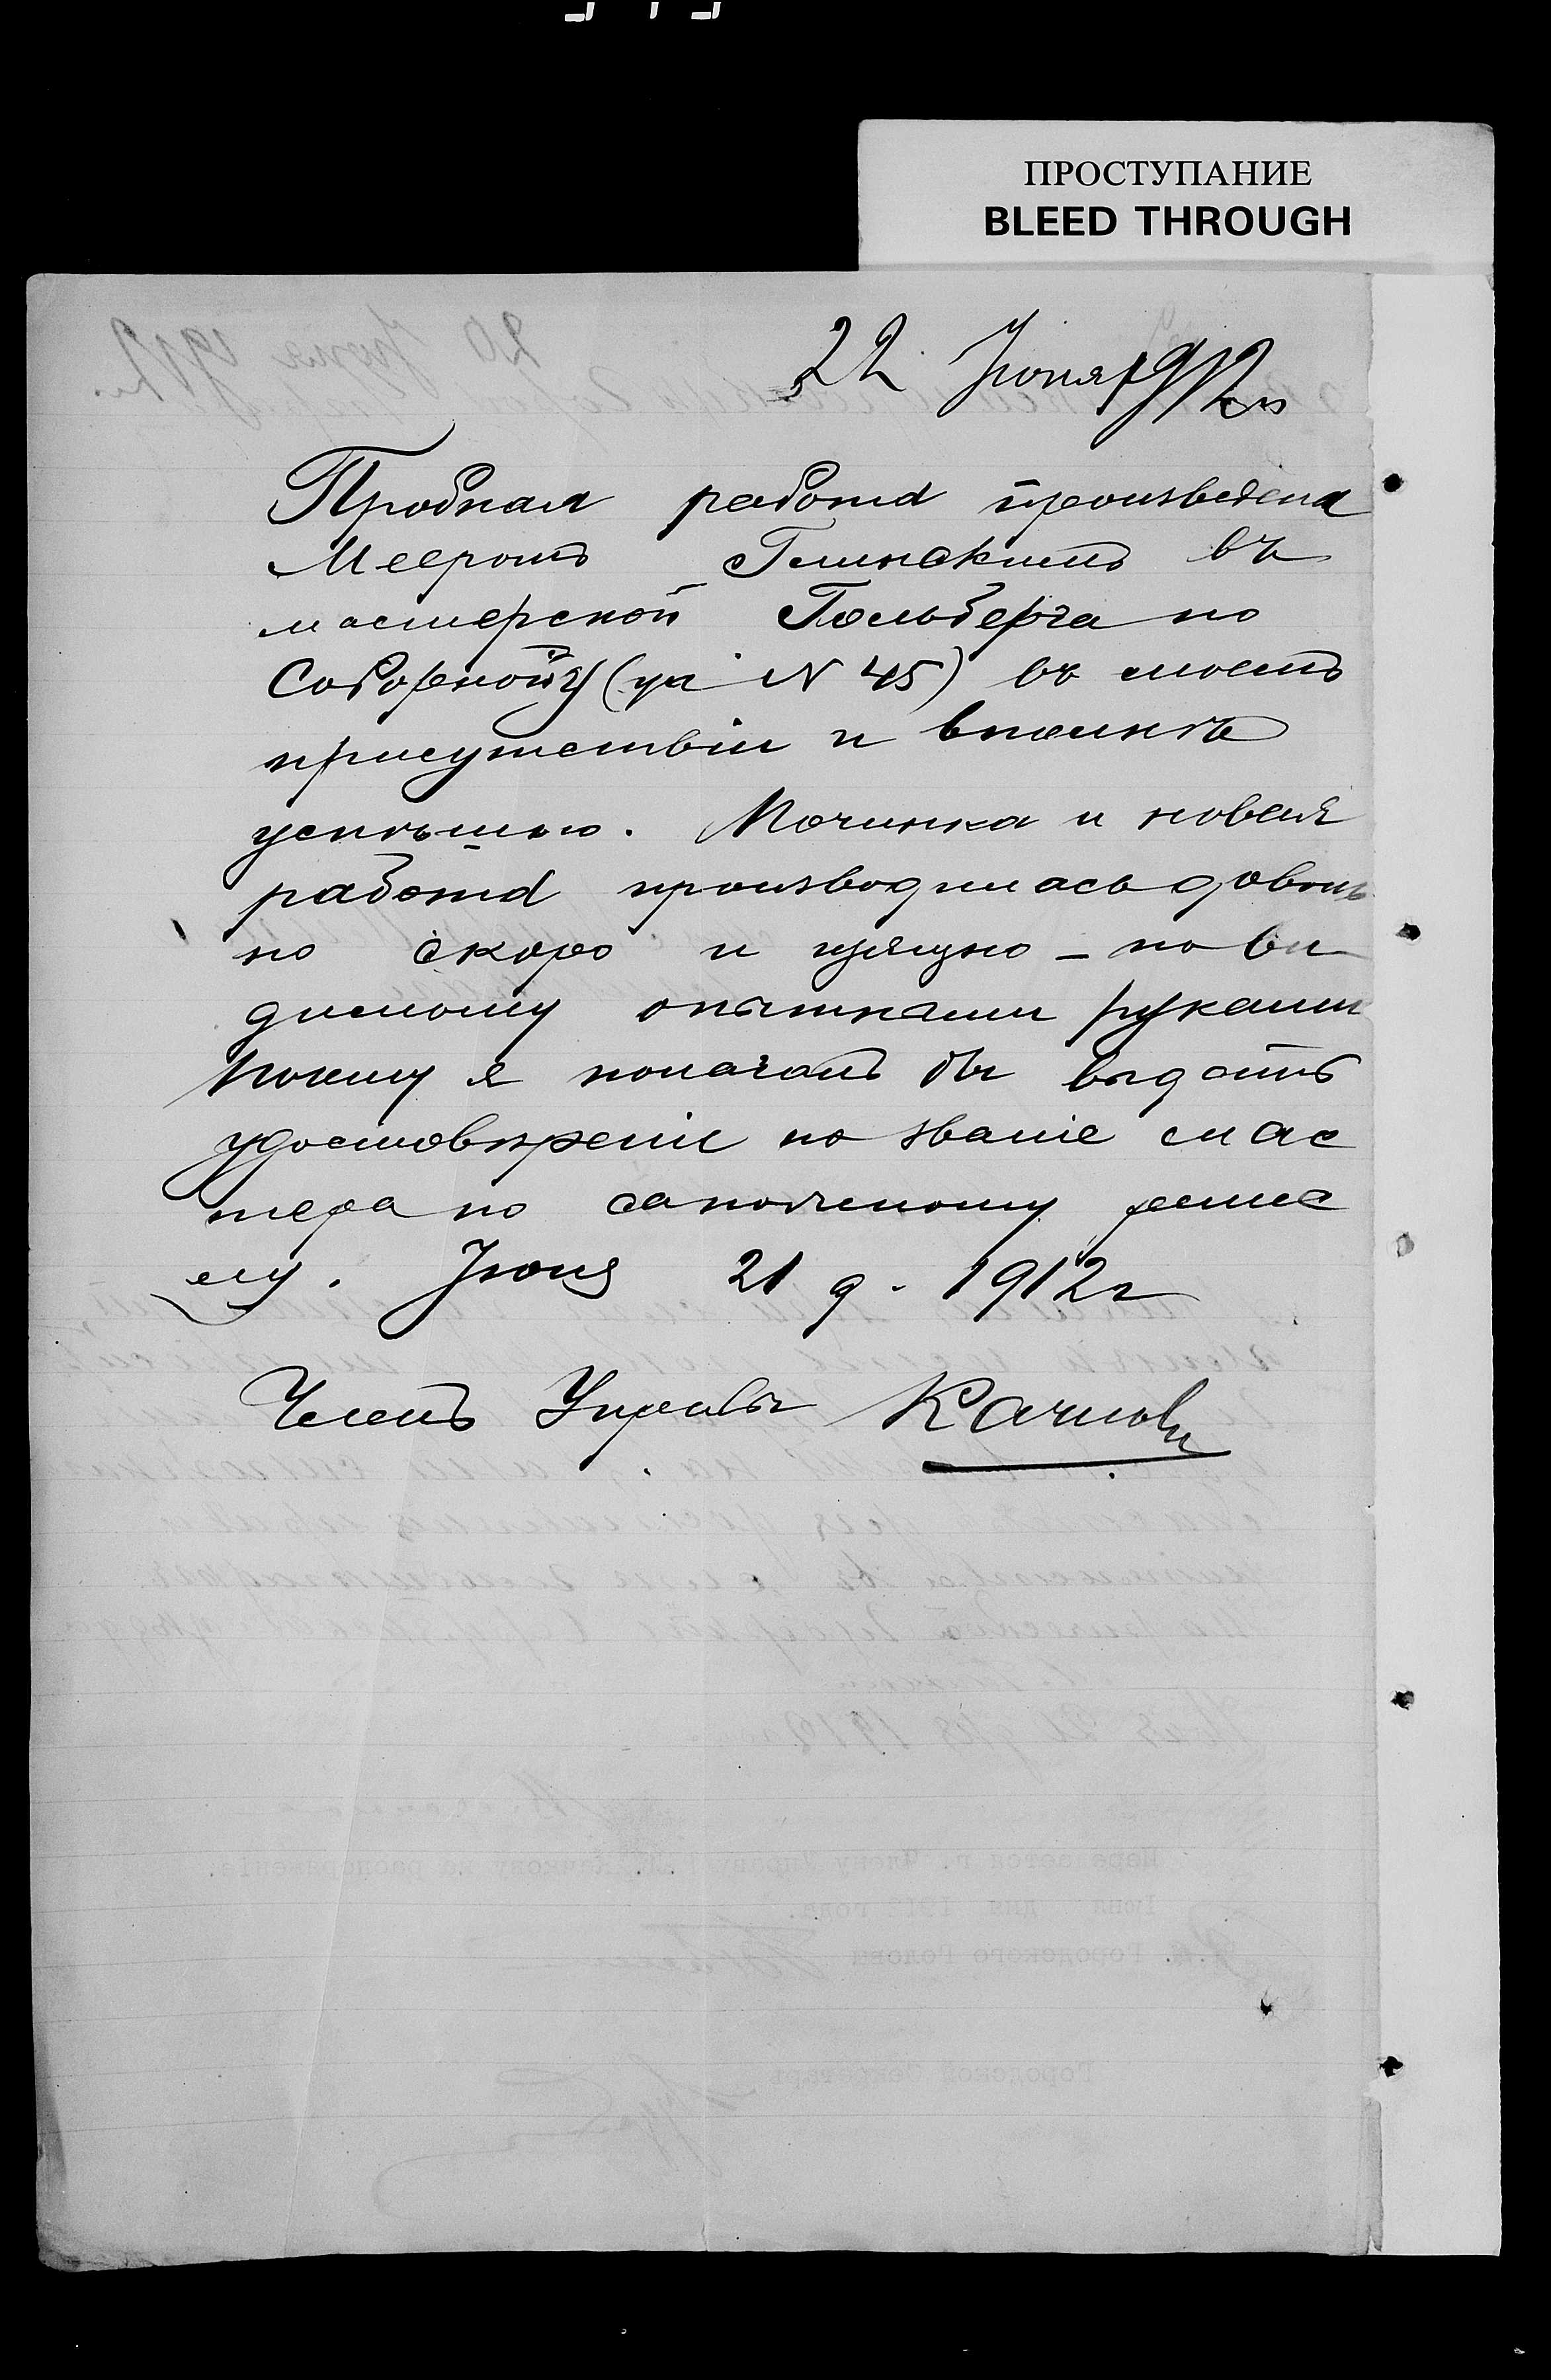 ПРОСТУПАНИЕ
BLEED THROUGH
22 Іюня 1912 г
Пробная работа произведена
Мееромъ Глинскимъ въ
мастерской Гольберга по
Соборной у (уг N 45) въ моемъ
присутствіи и вполнѣ
успѣшно. Починка и новая
работа производилась доволь
но скоро и изящно - по ви
димому опытными руками
почему я полагалъ бы выдать
удостовѣреніе на званіе мас
тера по сапожному ремес
лу. Іюня 21 д. 1912 г
Членъ Управы Качковъ